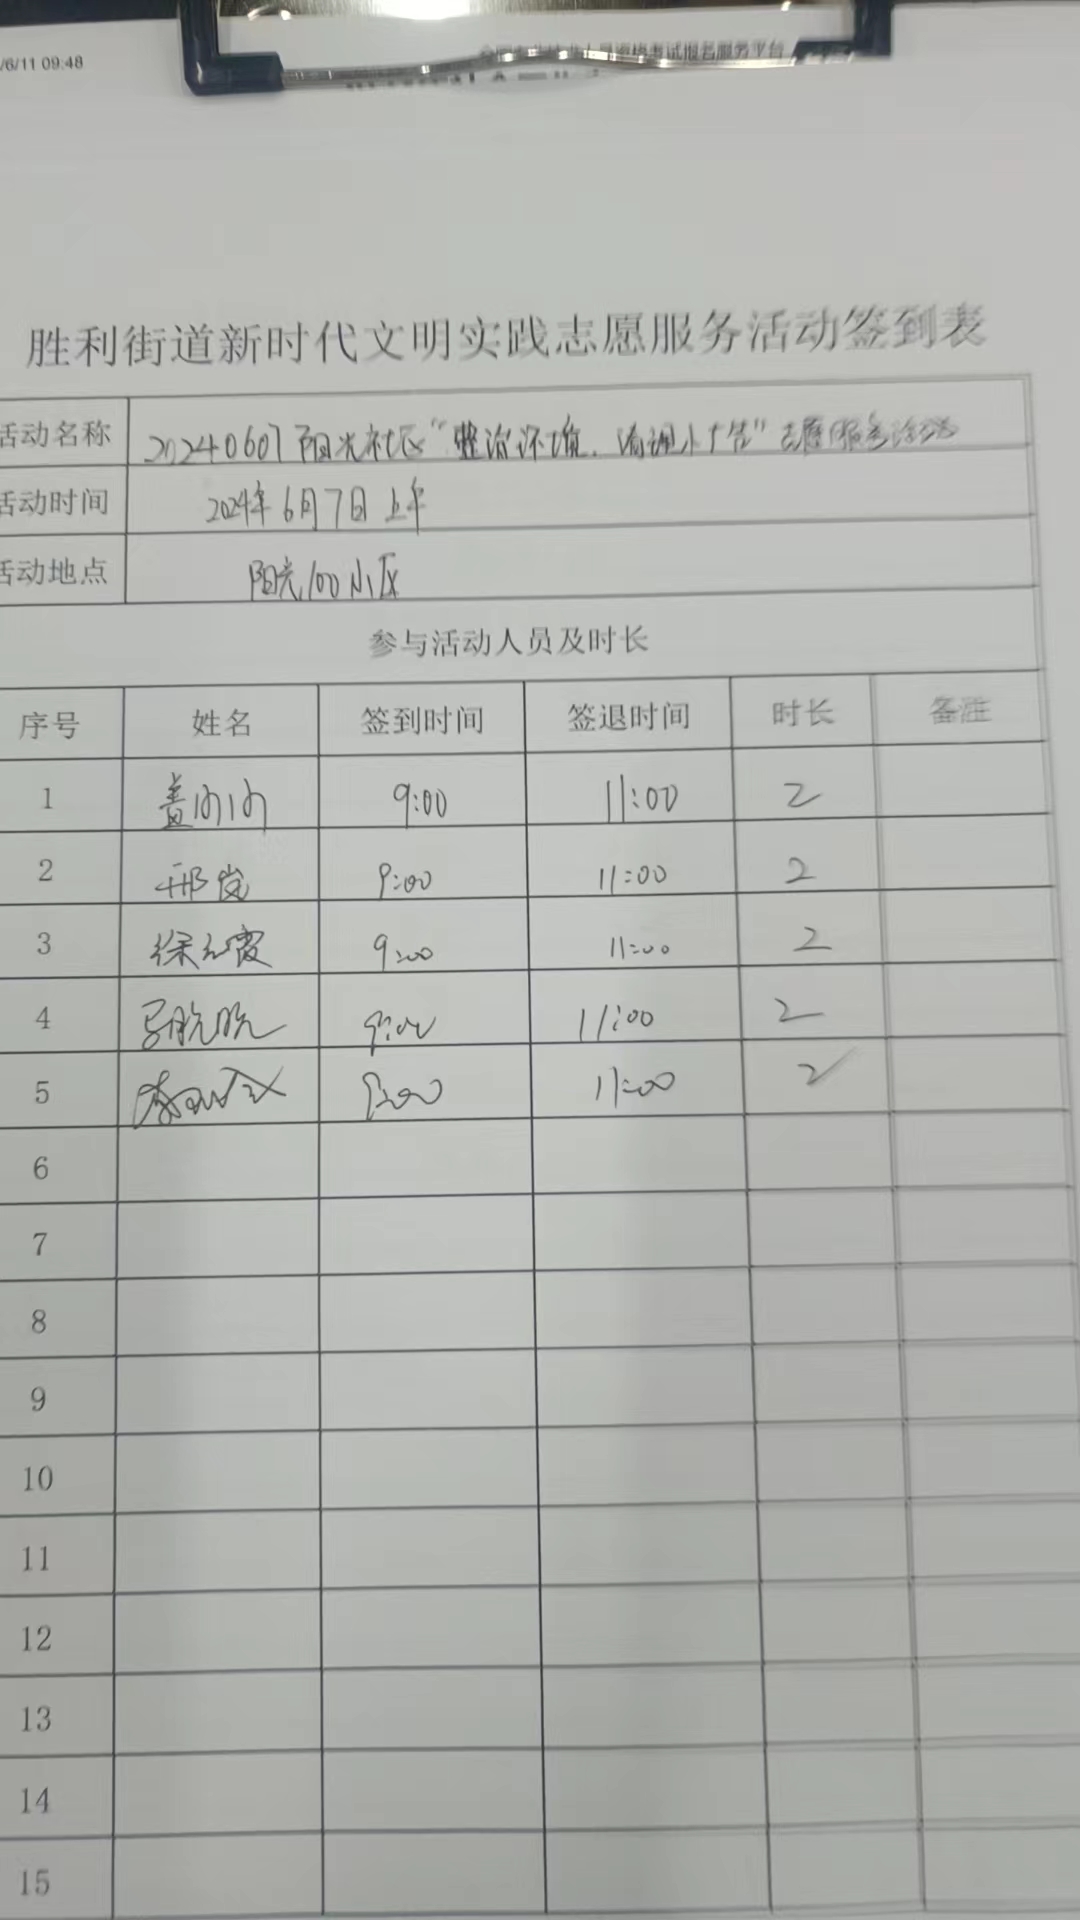 /6/11 09:48
胜利街道新时代文明实践志愿服务活动签到表
活动名称 20240607阳光社区“整治环境、清理小广告”志愿服务活动
活动时间 2024年6月7日上午
活动地点 阳光100小区
参与活动人员及时长
序号 姓名 签到时间 签退时间 时长 备注
1 盖内内 9:00 11:00 2
2 邢岚 9:00 11:00 2
3 徐红霞 9:00 11:00 2
4 马晓晓 9:00 11:00 2
5 9:00 11:00 2
6
7
8
9
10
11
12
13
14
15